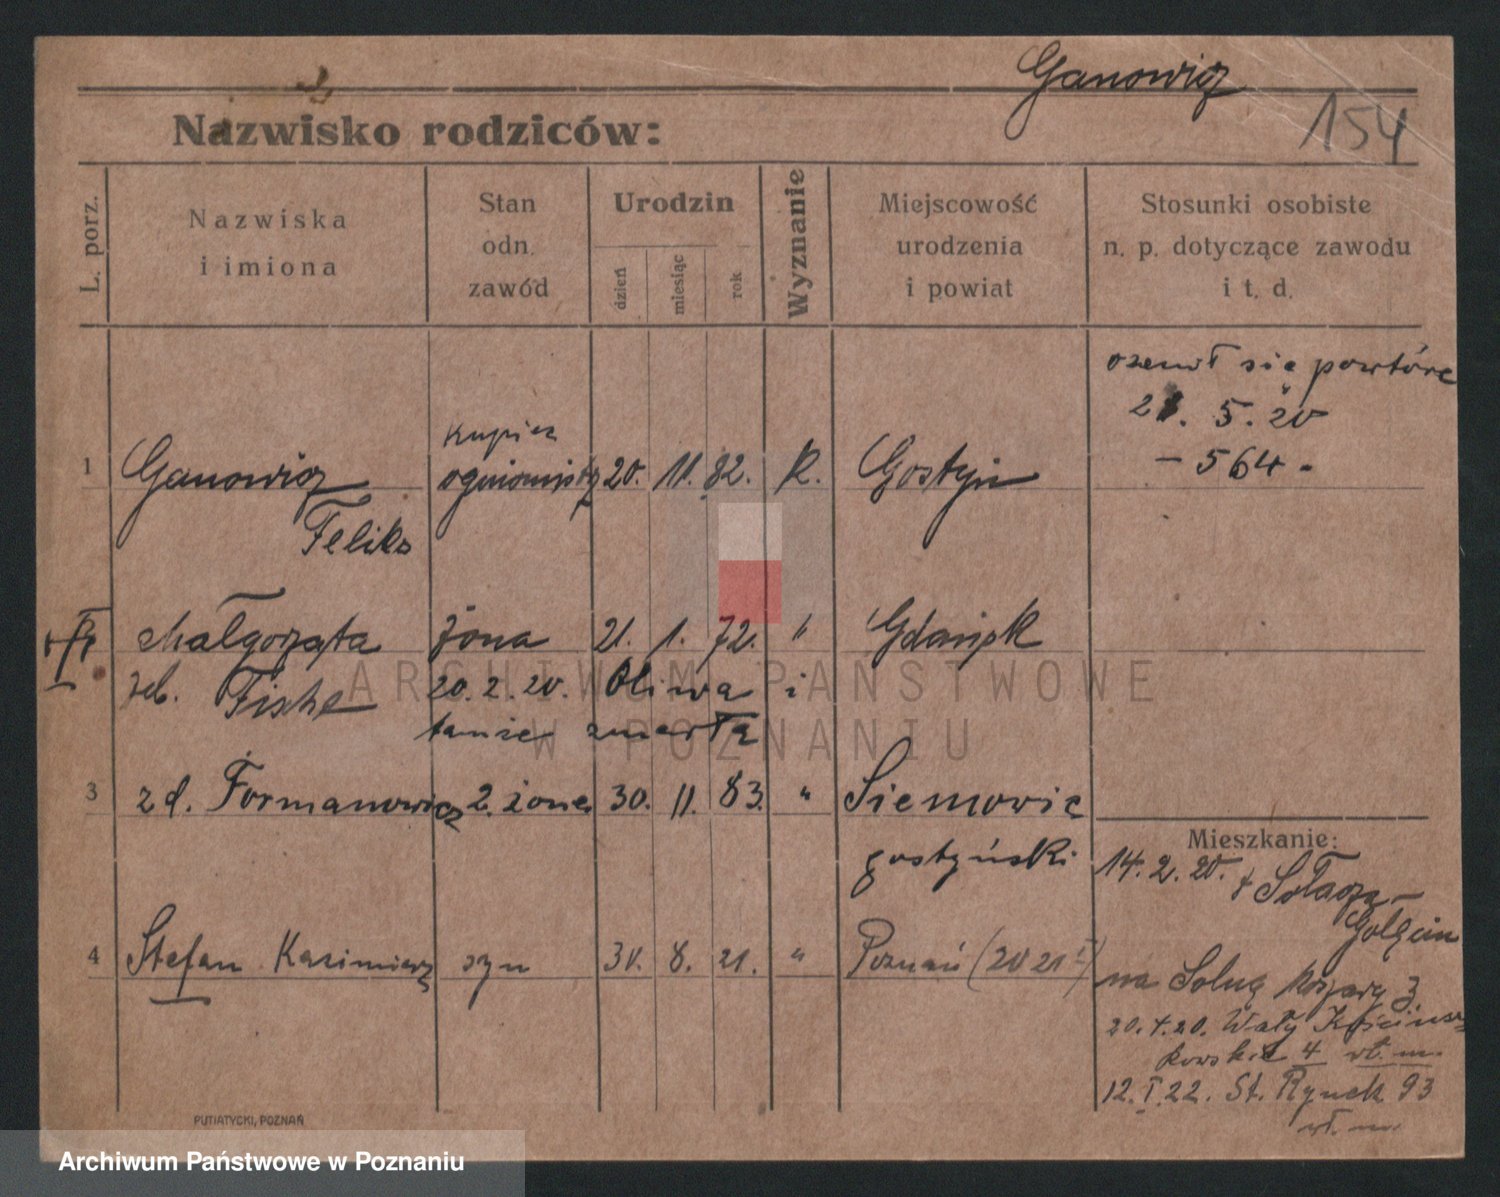 Ganowicz
154
Nazwisko rodziców:
L. porz.
Nazwiska
i imiona
Stan
odn.
zawód
Urodzin
dzień
miesiąc
rok
Wyznanie
Miejscowość
urodzenia
i powiat
Stosunki osobiste
n. p. dotyczące zawodu
i t. d.
ożenił się powtóre
5. 20
- 564 -
1 Ganowicz kupiec ogniomistrz 20. 11. 82. k. Gostyń
Feliks
Małgorzata żona 21. 1. 72. " Gdańsk
20. 2. 20. Oliwa
tamże zmarła
3 zd. Formanowicz 2. żona 30. 11. 83. " Siemowie
gostyński
Mieszkanie:
14. 2. 20. Sołacz-
Golęcin
4 Stefan Kazimierz syn 30. 8. 21. " Poznań
na koszary 3
20. 4. 20. Wały Kościusz-
kowskie 4 wł. m.
12. I. 22. St. Rynek 93
wł. m.
PUTIATYCKI, POZNAŃ
ARCHIWUM PAŃSTWOWE
W POZNANIU
Archiwum Państwowe w Poznaniu